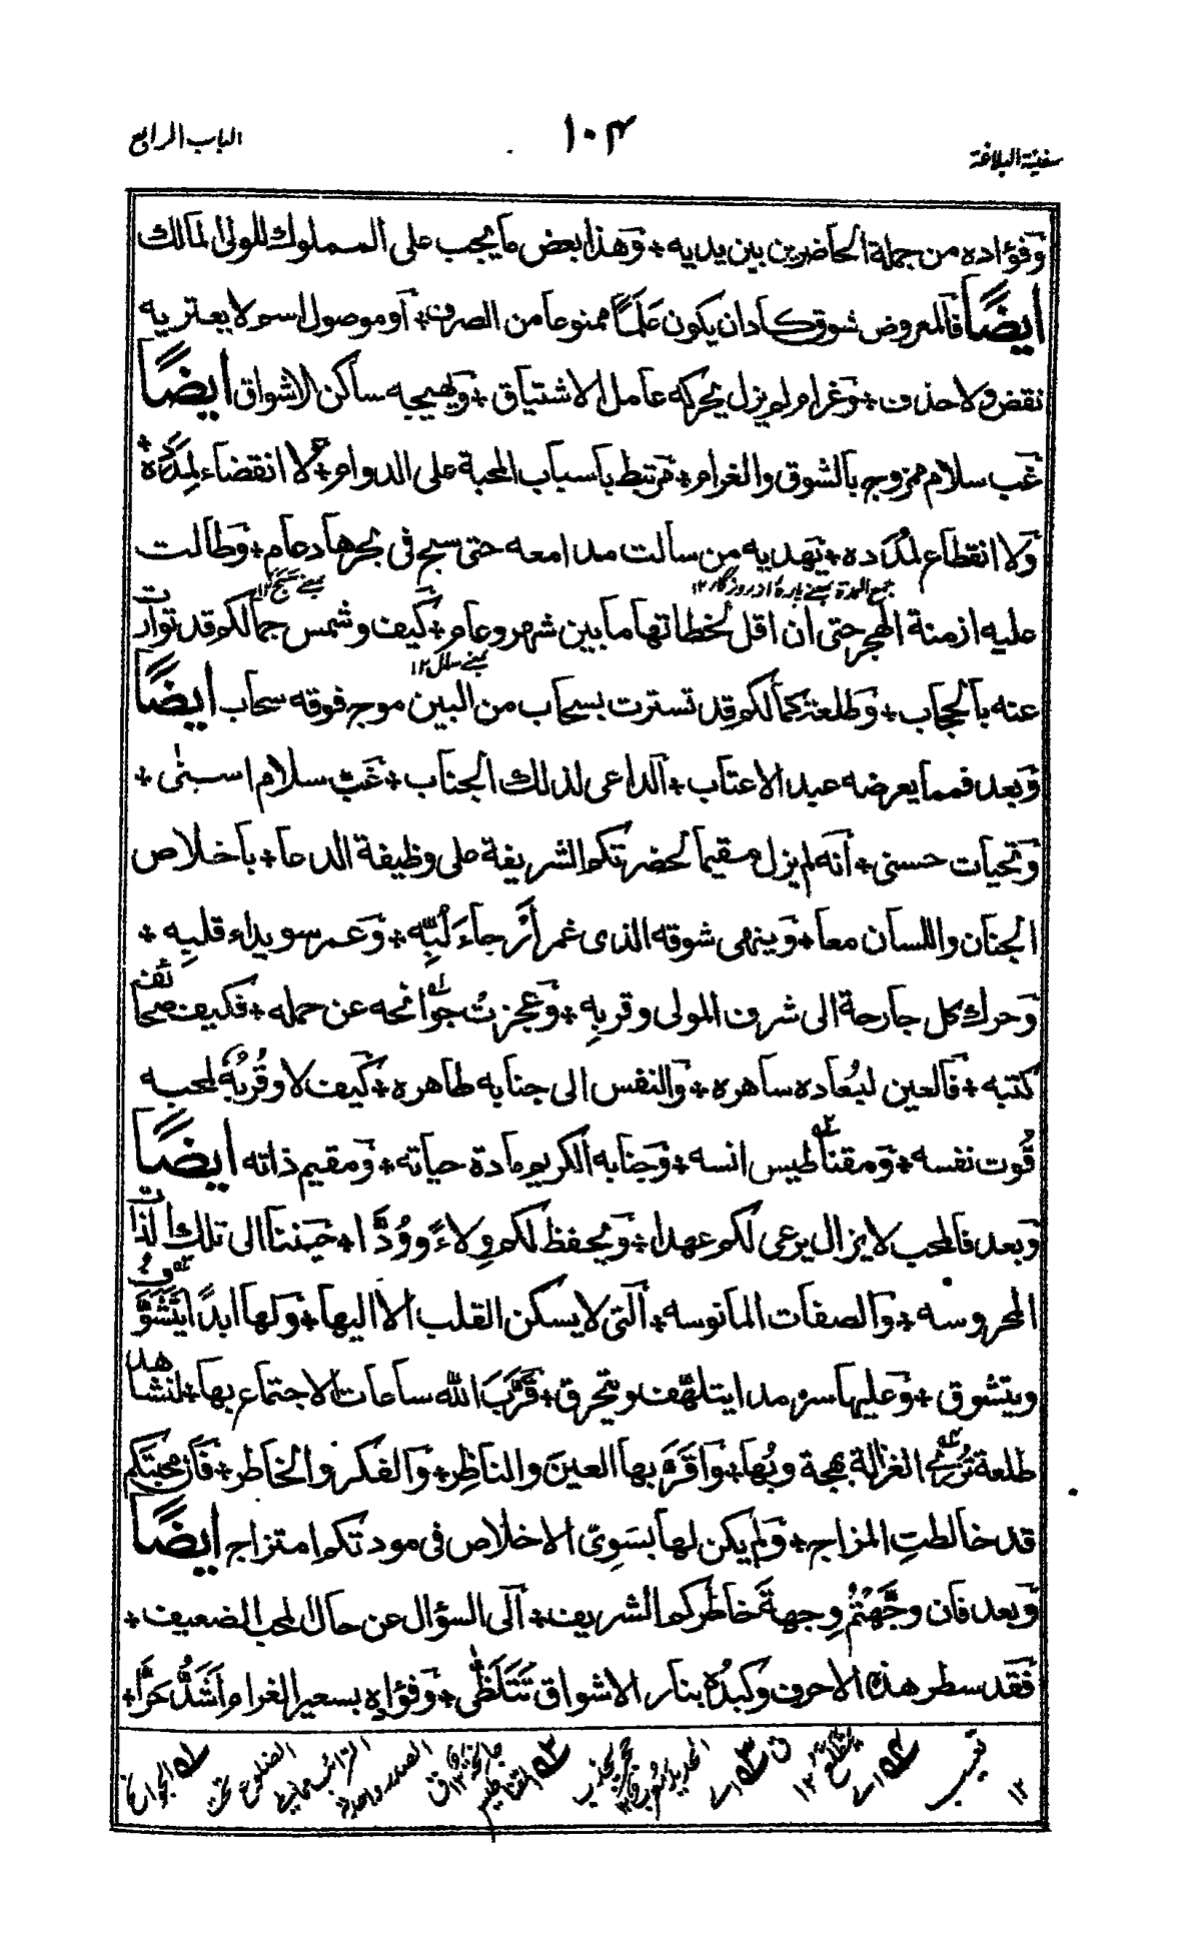 سفينة البلاغة
١٠٤
الباب الرابع
وَفؤاده من جملة الحاضرين بين يديه ٭ وَهذا بعض ما يجب على المملوك للمولى المالك
ايضًا فالمعروض شوق كاد ان يكون عَلَمًا ممنوعا من الصرف ٭ أو موصول اسم لا يعتريه
نقض ولا حذف ٭ وَغرام لم يزل يحركه عامل الاشتياق ٭ وَيهيجه ساكن الاشواق ايضًا
غب سلام ممزوج بالشوق والغرام ٭ مرتبط باسباب المحبة على الدوام ٭ لا انقضاء لِمَدَده ٭
وَلا انقطاع لمُدَده ٭ يَهديه من سالت مدامعه حتى سبح فى بحرها دعام ٭ وَطالت
جمع المدة يعنے پارۀ از روزگار ١٢
عليه ازمنة الهجر حتى ان اقل لحظاتها ما بين شهر وعام ٭ كَيف وشمس جمالكم قد توارت
عنه بالحجاب ٭ وَطلعة كمالكم قد تسترت بسحاب من البين موج فوقه سحاب ايضًا
وَبعد فمما يعرضه عبد الاعتاب ٭ الداعى لذلك الجناب ٭ غَبّ سلام اسنى ٭
وَتحيات حسنى ٭ أنه لم يزل مقيما لحضرتكم الشريفة على وظيفة الدعا ٭ باخلاص
الجنان واللسان معا ٭ وَينهى شوقه الذى غمر أرجاءَ لُبِّه ٭ وَعمر سويداء قلبِه ٭
وَحرك كل جارحة الى شرف المولى وقربِه ٭ وَعجزتُ جوانحه عن حمله ٭ فكيف صحائف
كتبه ٭ فالعين لبُعاده ساهره ٭ والنفس الى جنابه طاهره ٭ كَيف لا وقُربُهُ لمحبه
قُوت نفسه ٭ وَمقناطيس انسه ٭ وَجنابه الكريم مادة حياته ٭ وَمقيم ذاته ايضًا
وَبعد فالمحب لا يزال يرعى لكم عهدا ٭ وَيحفظ لكم وِلاءً ووُدًّا ٭ حَنينا الى تلك الذات
المحروسه ٭ وَالصفات المانوسه ٭ التى لا يسكن القلب الا اليها ٭ وَلها ابدًا يَتَشَوَّفُ
ويتشوق ٭ وَعليها سرمدا يتلهّف ويتحرق ٭ قَرَّبَ الله ساعات الاجتماع بها ٭ لنشاهد
طلعة تُزرى الغزالة بهجة وبُها ٭ وَاقرَّ بها العينَ والناظِر ٭ وَالفكر والخاطر ٭ فَان محبتكم
قد خالطتِ المزاج ٭ وَلم يكن لها بسَوِىّ الاخلاص فى مودتكم امتزاج ايضًا
وَبعد فان وجَّهتُم وِجهةَ خاطركم الشريف ٭ الى السؤال عن حال المحب الضعيف ٭
فَقد سطر هذه الاحرف وكَبدُه بنار الاشواق تَتَلَظّى ٭ وَفؤاده بسعير الغرام اَشَدُّ حَرًّا ٭